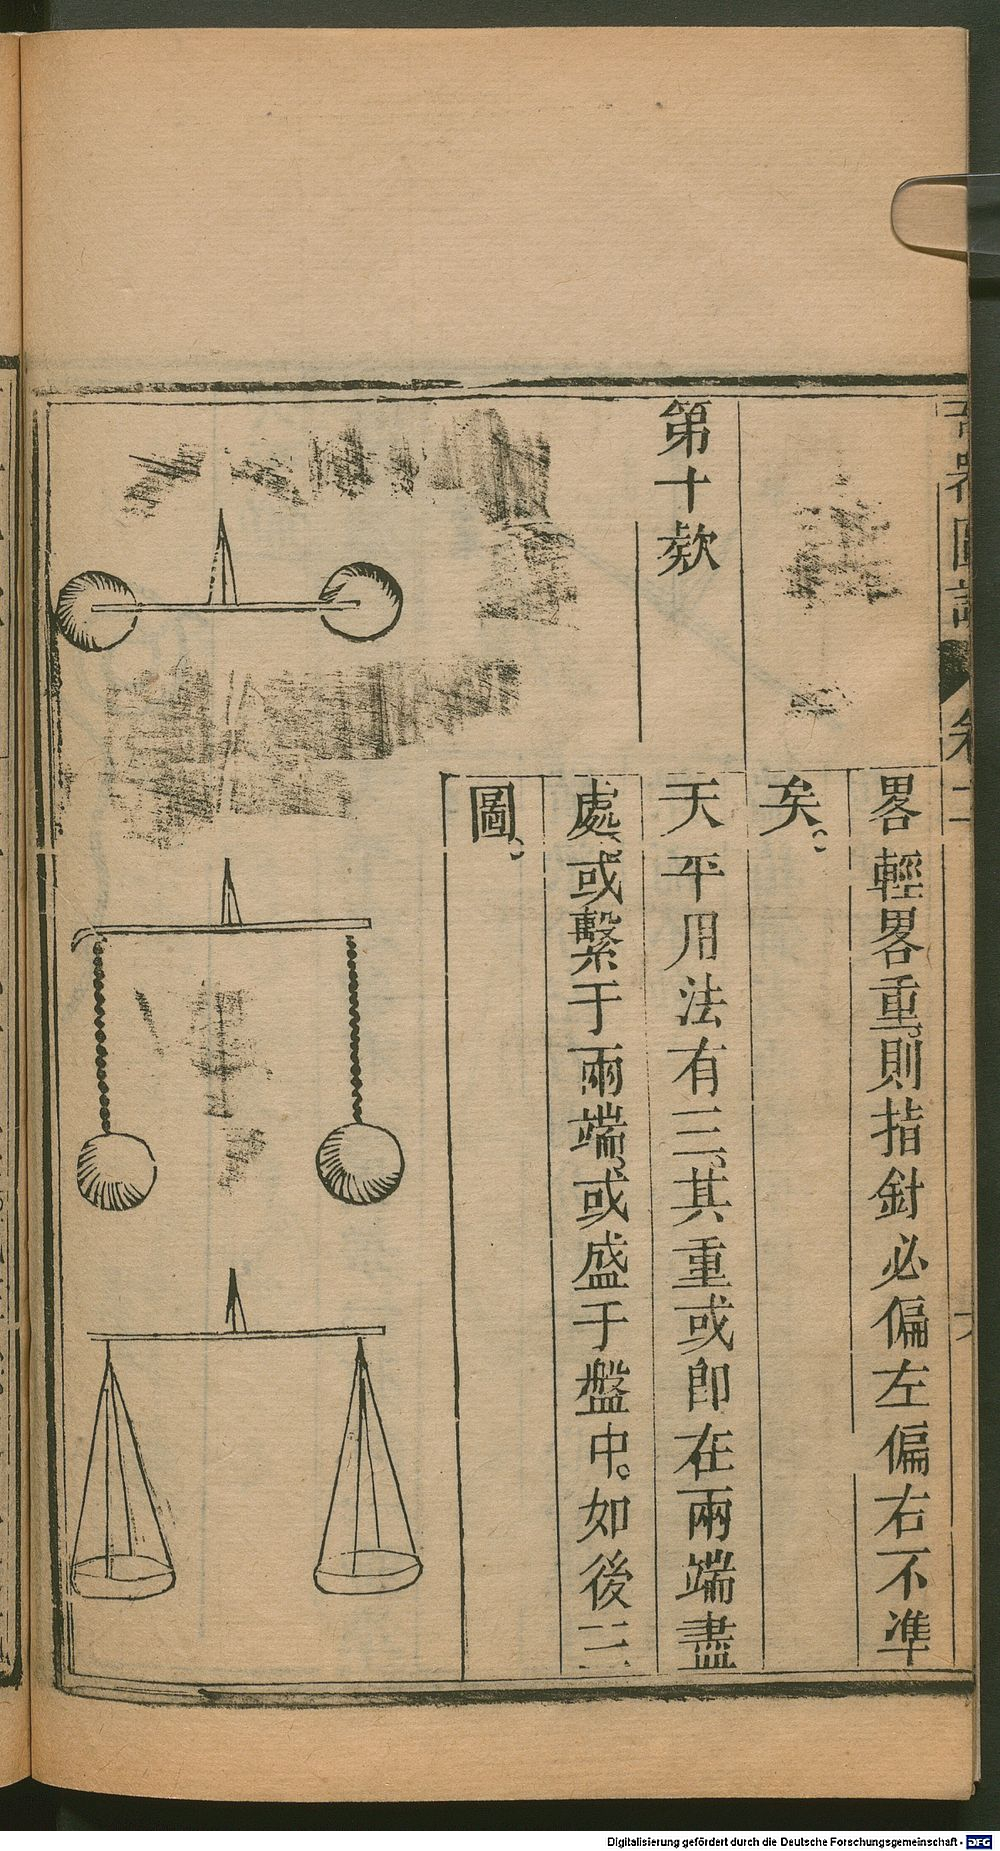 奇器圖說
卷二
畧輕畧重則指針必偏左偏右不準
矣。
第十款
天平用法有三其重或卽在兩端盡
處或繫于兩端或盛于盤中。如後三
圖。
Digitalisierung gefördert durch die Deutsche Forschungsgemeinschaft - DFG